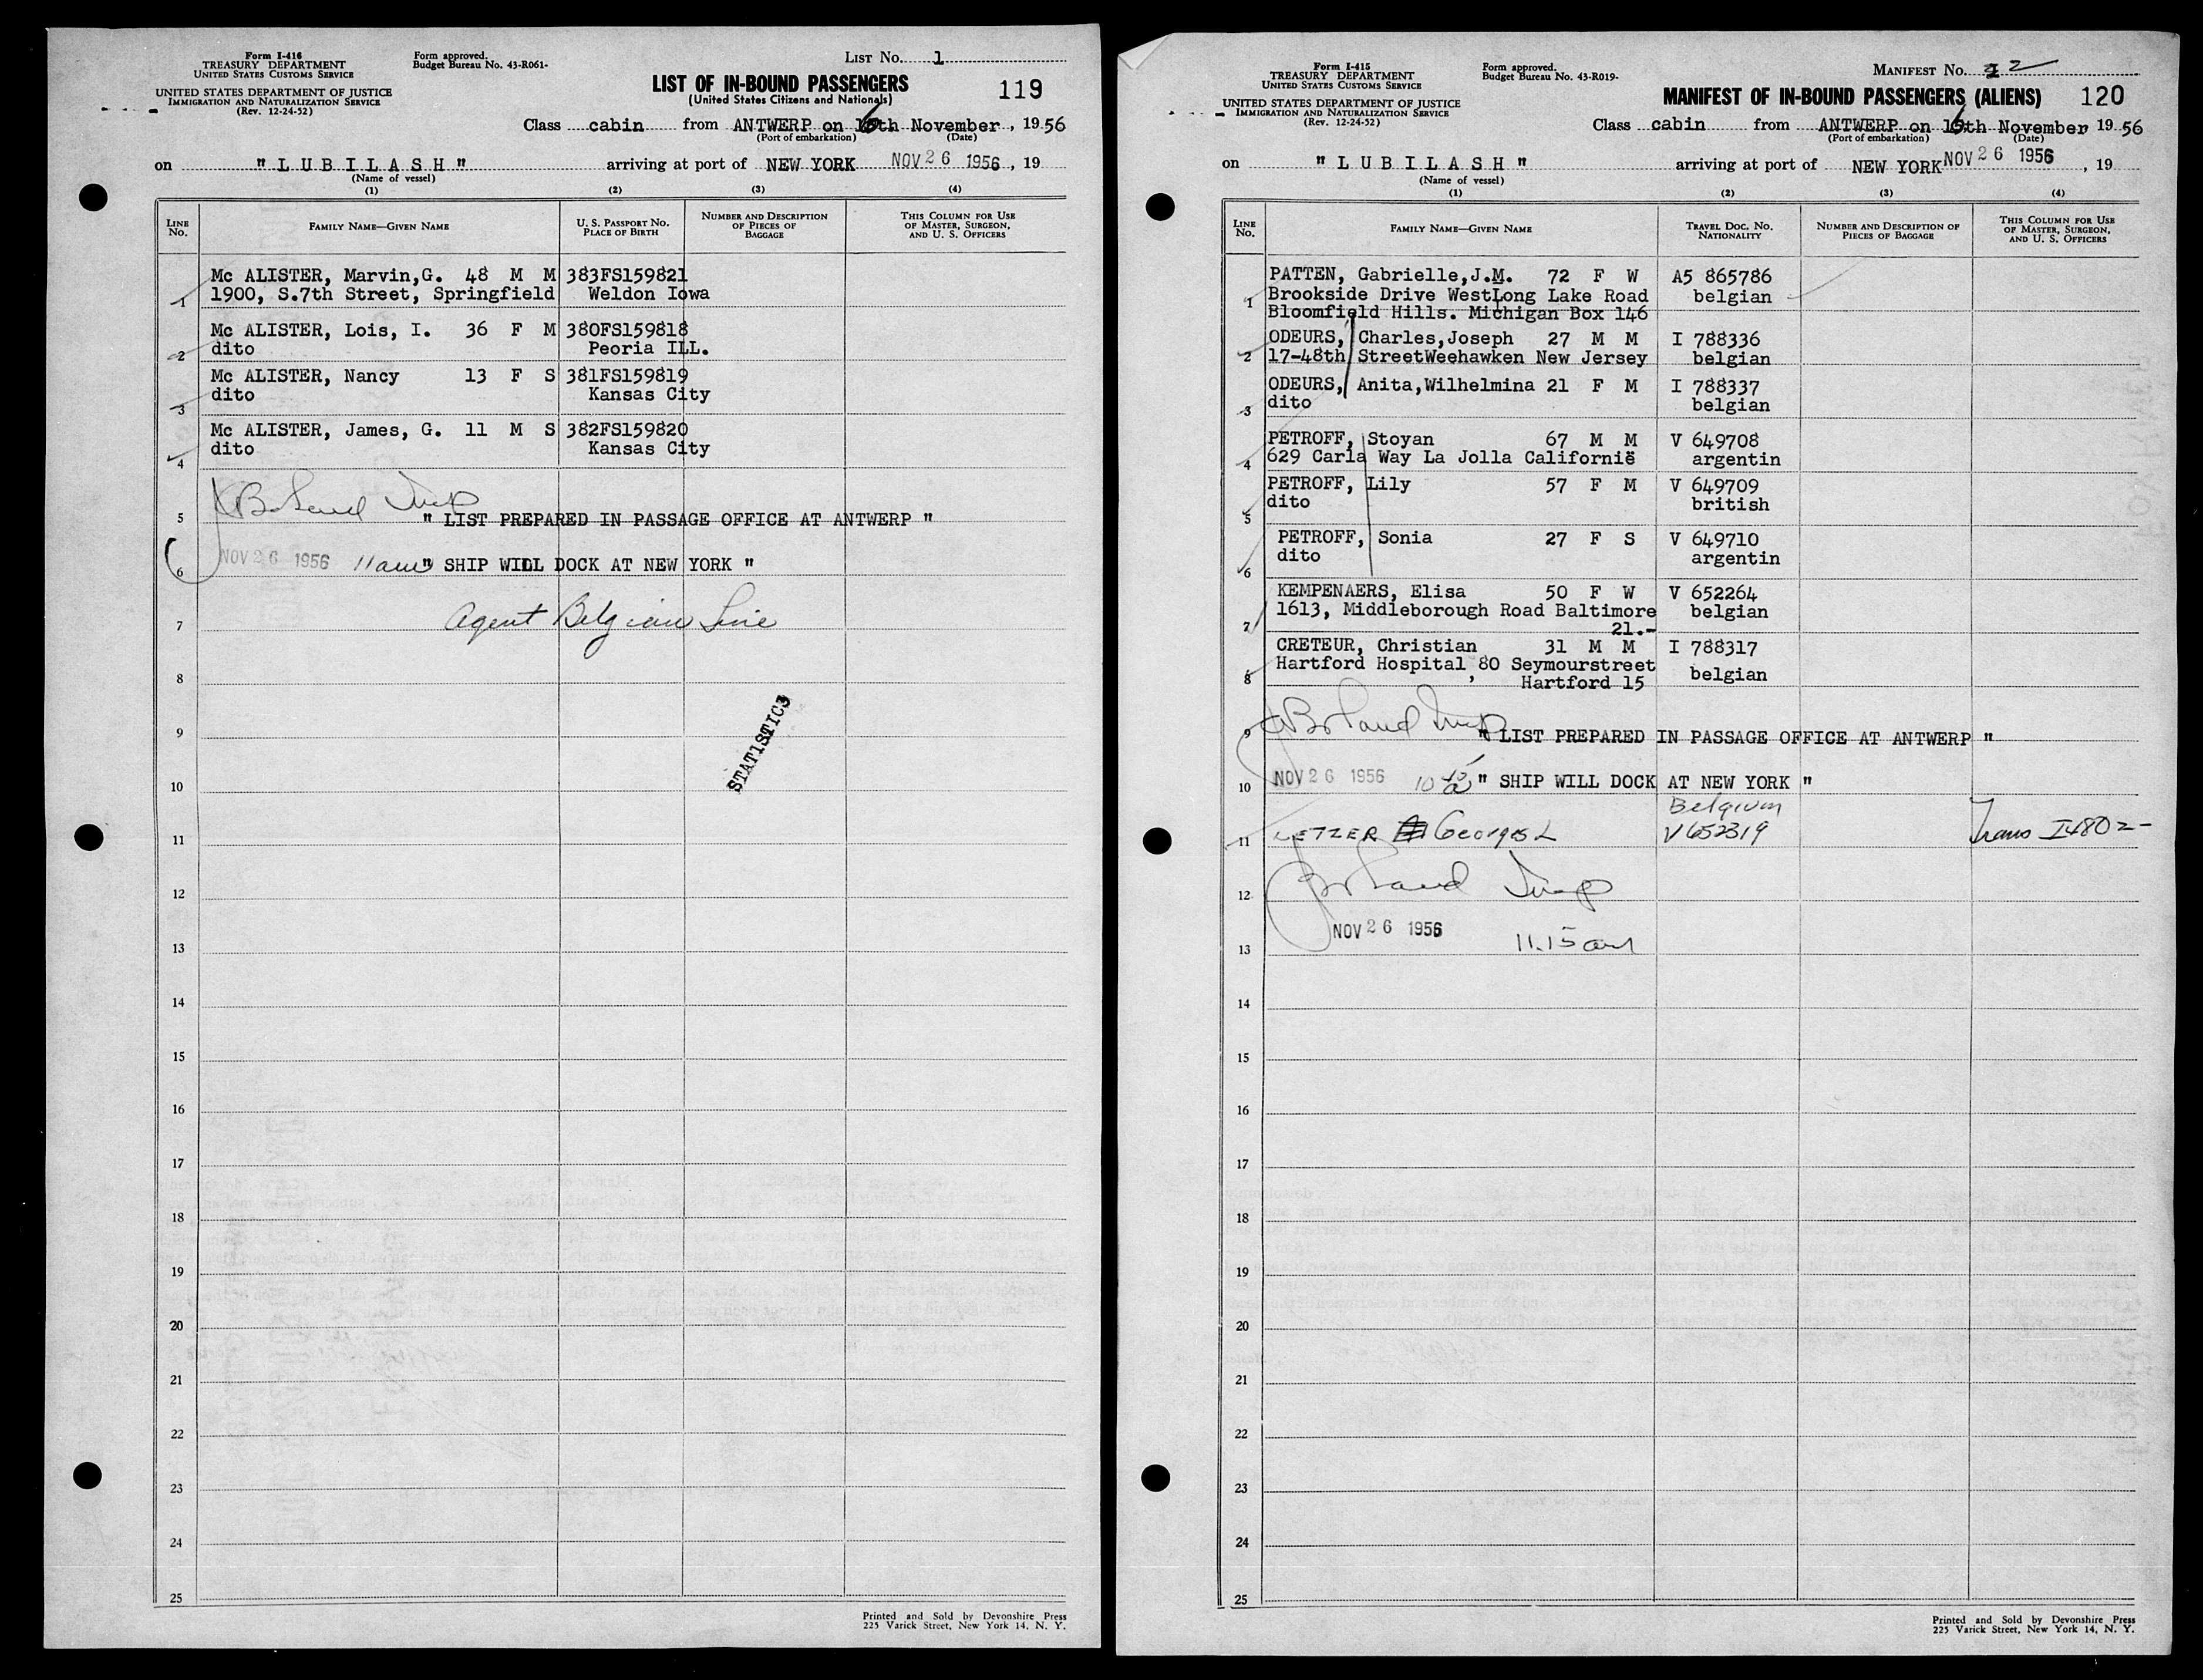 Form I-416
TREASURY DEPARTMENT
UNITED STATES CUSTOMS SERVICE
UNITED STATES DEPARTMENT OF JUSTICE
IMMIGRATION AND NATURALIZATION SERVICE
(Rev. 12-24-52)
Form approved.
Budget Bureau No. 43-R061-
LIST No. 1
LIST OF IN-BOUND PASSENGERS
(United States Citizens and Nationals)
119
Class cabin from ANTWERP on 6th November, 1956
(Port of embarkation) (Date)
on "LUBILASH" arriving at port of NEW YORK NOV 26 1956, 19
(Name of vessel)
(1) (2) (3) (4)
LINE No. FAMILY NAME—GIVEN NAME U. S. PASSPORT NO. PLACE OF BIRTH NUMBER AND DESCRIPTION OF PIECES OF BAGGAGE THIS COLUMN FOR USE OF MASTER, SURGEON, AND U. S. OFFICERS
Mc ALISTER, Marvin,G. 48 M M 383FS159821
1 1900, S.7th Street, Springfield Weldon Iowa
Mc ALISTER, Lois, I. 36 F M 380FS159818
2 dito Peoria ILL.
Mc ALISTER, Nancy 13 F S 381FS159819
3 dito Kansas City
Mc ALISTER, James, G. 11 M S 382FS159820
4 dito Kansas City
5 " LIST PREPARED IN PASSAGE OFFICE AT ANTWERP "
6 NOV 26 1956 11am " SHIP WILL DOCK AT NEW YORK "
7 Agent Belgian Line
8
STATISTICS
9
10
11
12
13
14
15
16
17
18
19
20
21
22
23
24
25
Printed and Sold by Devonshire Press
225 Varick Street, New York 14, N. Y.
Form I-415
TREASURY DEPARTMENT
UNITED STATES CUSTOMS SERVICE
UNITED STATES DEPARTMENT OF JUSTICE
IMMIGRATION AND NATURALIZATION SERVICE
(Rev. 12-24-52)
Form approved.
Budget Bureau No. 43-R019-
MANIFEST No. 2
MANIFEST OF IN-BOUND PASSENGERS (ALIENS) 120
Class cabin from ANTWERP on 6th November 1956
(Port of embarkation) (Date)
on "LUBILASH" arriving at port of NEW YORK NOV 26 1956, 19
(Name of vessel)
(1) (2) (3) (4)
LINE No. FAMILY NAME—GIVEN NAME TRAVEL DOC. NO. NATIONALITY NUMBER AND DESCRIPTION OF PIECES OF BAGGAGE THIS COLUMN FOR USE OF MASTER, SURGEON, AND U. S. OFFICERS
PATTEN, Gabrielle,J.M. 72 F W A5 865786
1 Brookside Drive WestLong Lake Road belgian
Bloomfield Hills. Michigan Box 146
ODEURS, Charles,Joseph 27 M M I 788336
2 17-48th StreetWeehawken New Jersey belgian
ODEURS, Anita,Wilhelmina 21 F M I 788337
3 dito belgian
PETROFF, Stoyan 67 M M V 649708
4 629 Carla Way La Jolla Californië argentin
PETROFF, Lily 57 F M V 649709
5 dito british
PETROFF, Sonia 27 F S V 649710
6 dito argentin
KEMPENAERS, Elisa 50 F W V 652264
7 1613, Middleborough Road Baltimore belgian
21.-
CRETEUR, Christian 31 M M I 788317
8 Hartford Hospital, 80 Seymourstreet belgian
Hartford 15
9 " LIST PREPARED IN PASSAGE OFFICE AT ANTWERP "
10 NOV 26 1956 " SHIP WILL DOCK AT NEW YORK "
Belgium
11 Georges L V652319 Trans I480
12
NOV 26 1956
13 11.15 am
14
15
16
17
18
19
20
21
22
23
24
25
Printed and Sold by Devonshire Press
225 Varick Street, New York 14, N. Y.